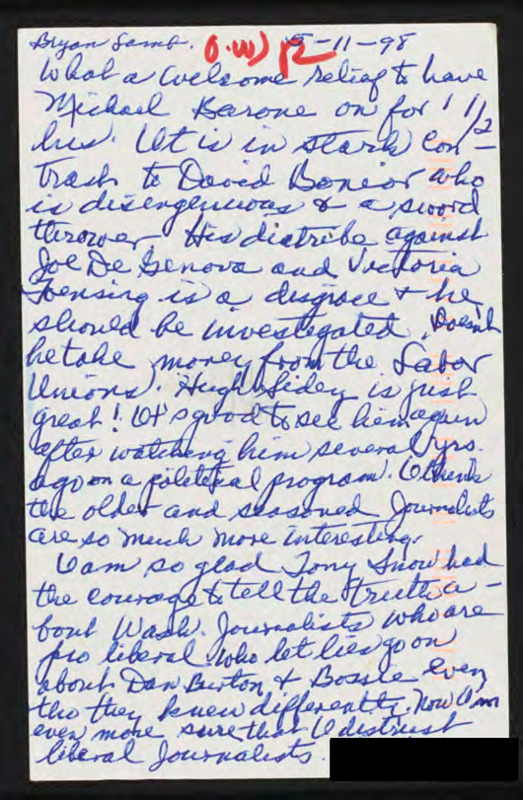 Bryan Lamb. O.W) pz 5-11-98
What a welcome relief to have
Michael Barone on for 1 1/2
hrs. It is in stark con-
trast to David Bonior who
is disengenuous & a sword
thrower. His diatribe against
Joe De Genova and Victoria
Toensing is a disgrace & he
should be investigated. Doesn't
he take money from the Labor
Unions). Hugh Sidey is just
great! It's good to see him again
after watching him several yrs.
ago on a political program. I think
the older and seasoned Journalists
are so much more interesting.
I am so glad Tony Snow had
the courage to tell the truth a-
bout Wash. Journalists who are
pro liberal who let lies go on
about Dan Burton & Bossie even
tho they knew differently. Now I am
even more sure that I distrust
liberal Journalists.